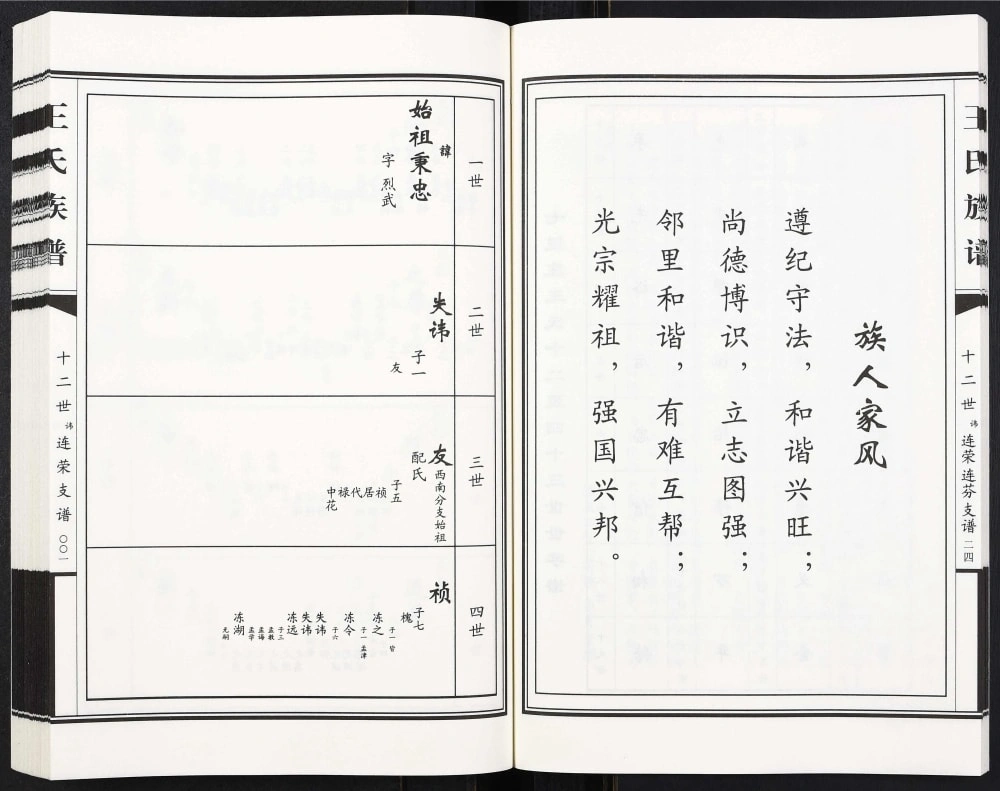 王氏族谱
十二世讳连荣连芬支谱 二四
族人家风
遵纪守法，和谐兴旺；
尚德博识，立志图强；
邻里和谐，有难互帮；
光宗耀祖，强国兴邦。
一世
始祖諱秉忠
字烈武
二世
失讳
子一
友
三世
友西南分支始祖
配氏
子五
祯
居
代
禄
中花
四世
祯
子七
槐
子一 皆
冻之
子一 孟津
冻令
子六
失讳
失讳
冻远
子三
孟教
孟诲
孟学
冻湖
无嗣
王氏族谱
十二世讳连荣支谱
〇〇一